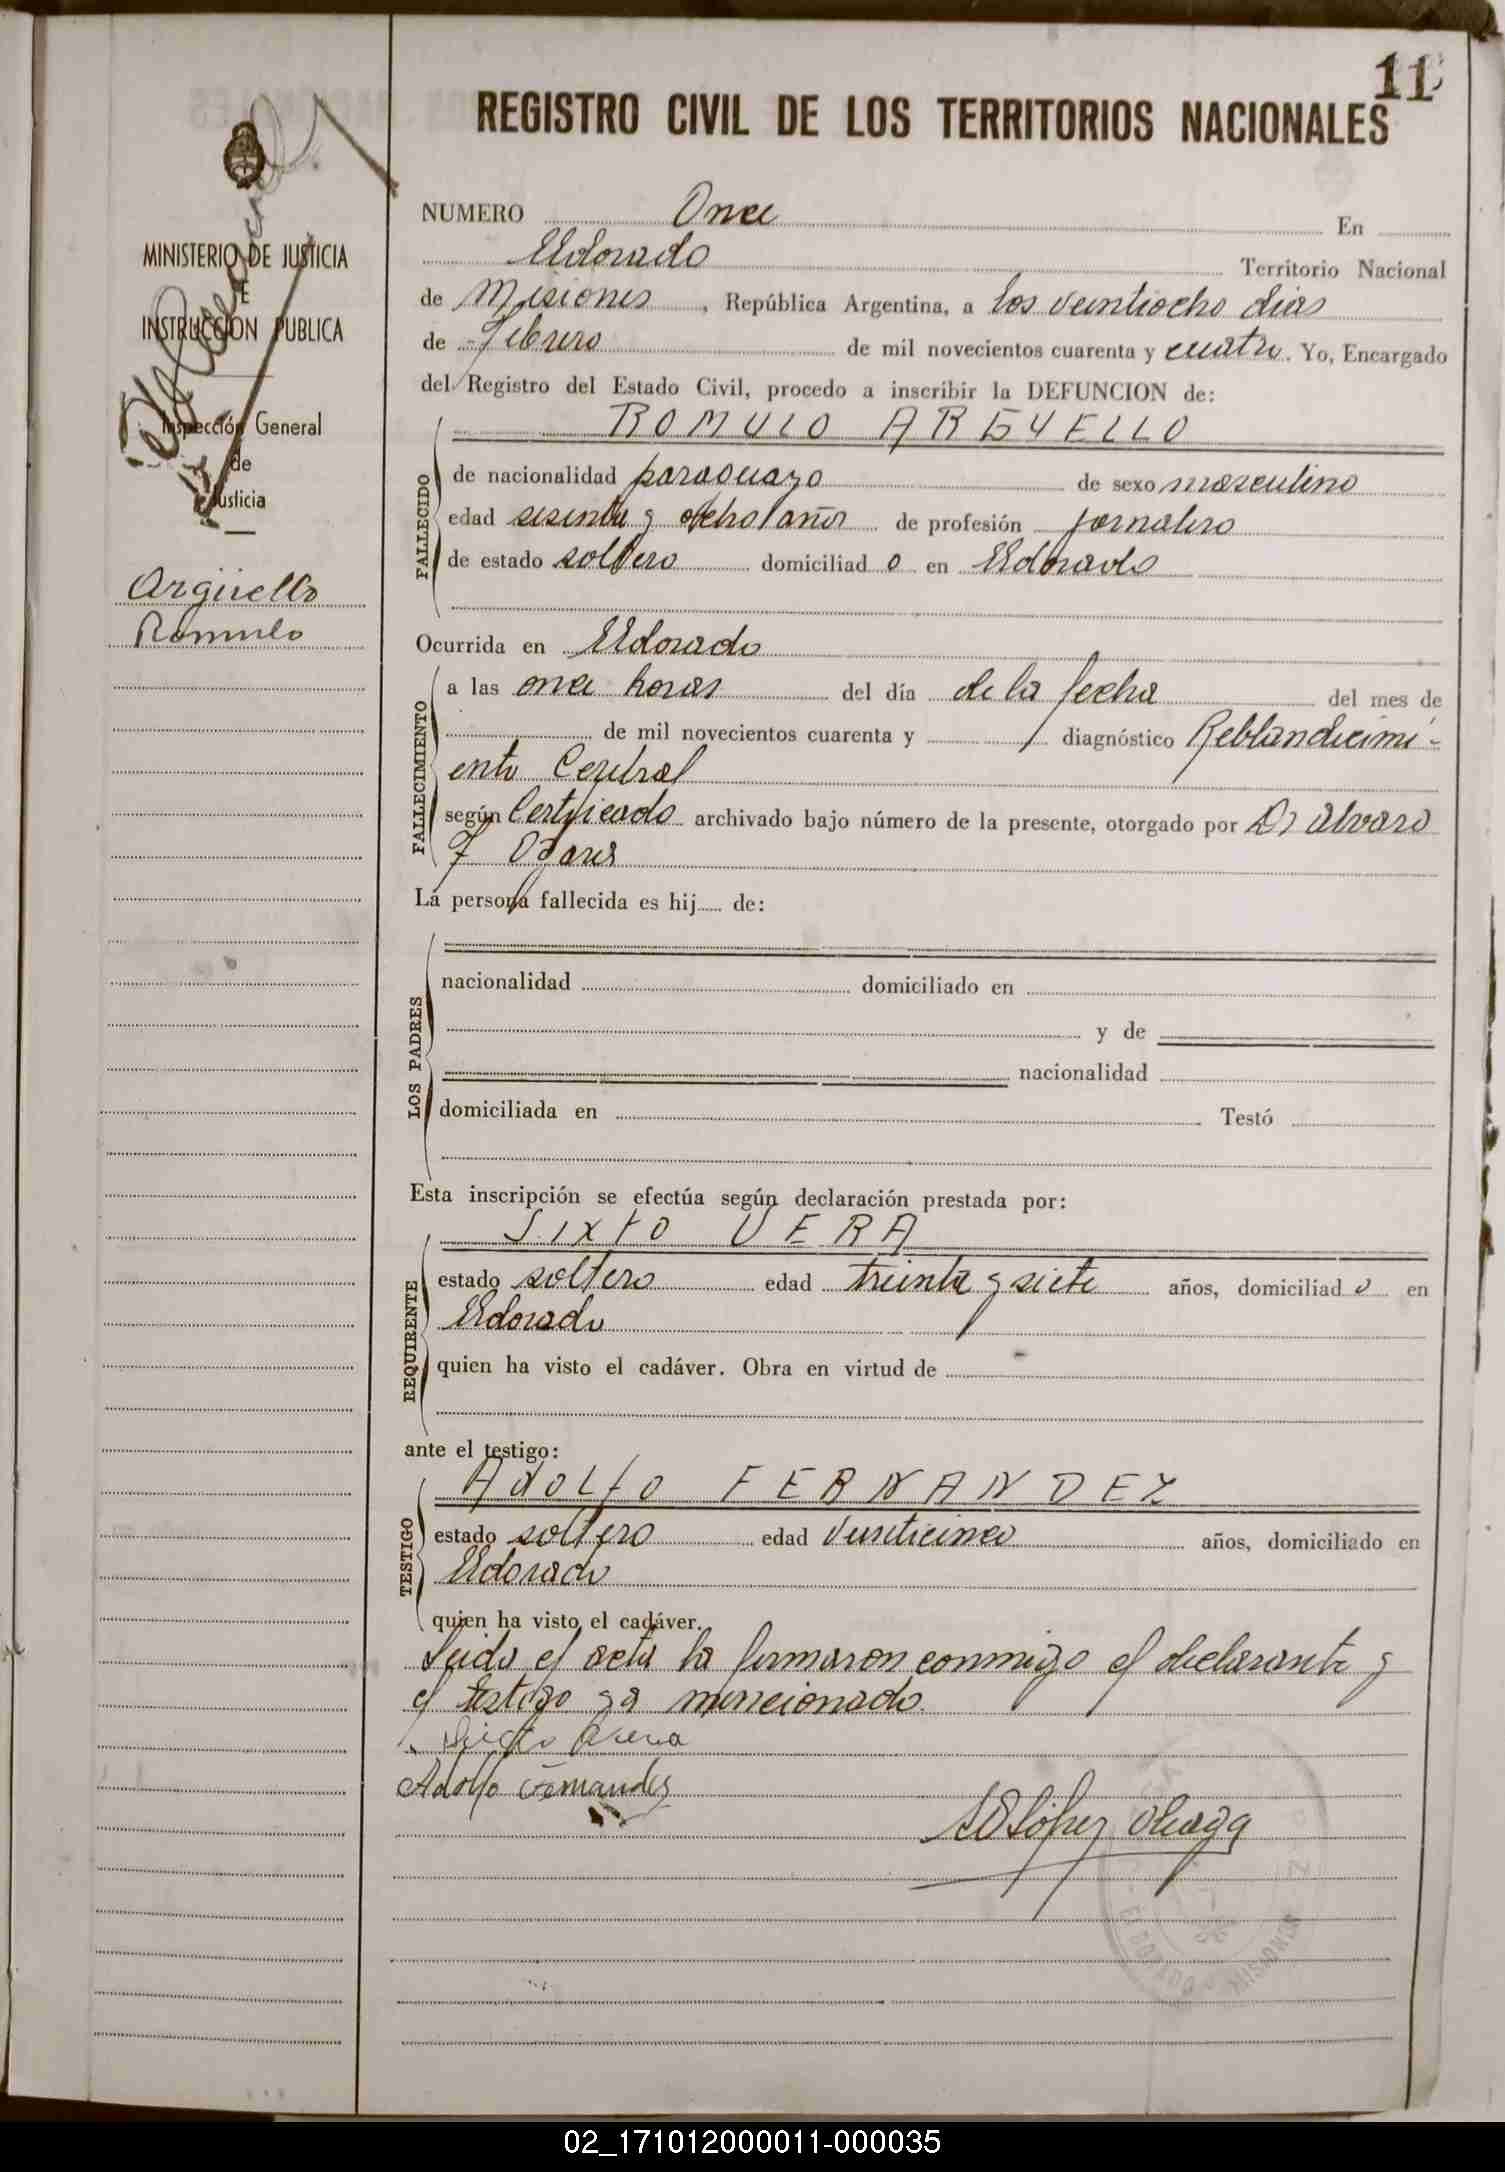 11
REGISTRO CIVIL DE LOS TERRITORIOS NACIONALES
MINISTERIO DE JUSTICIA
E
INSTRUCCIÓN PUBLICA
Inspección General
de
Justicia
Argüello
Romulo
NUMERO Once En
Eldorado Territorio Nacional
de Misiones, República Argentina, a los veintiocho dias
de Febrero de mil novecientos cuarenta y cuatro. Yo, Encargado
del Registro del Estado Civil, procedo a inscribir la DEFUNCION de:
ROMULO ARGUELLO
FALLECIDO
de nacionalidad paraguayo de sexo masculino
edad sesenta y ocho años de profesión jornalero
de estado soltero domiciliad o en Eldorado
Ocurrida en Eldorado
FALLECIMIENTO
a las once horas del día de la fecha del mes de
de mil novecientos cuarenta y diagnóstico Reblandicimi-
ento Cerebral
según Certificado archivado bajo número de la presente, otorgado por Dr Alvaro
F
La persona fallecida es hij de:
LOS PADRES
nacionalidad domiciliado en
y de
nacionalidad
domiciliada en Testó
Esta inscripción se efectúa según declaración prestada por:
SIXTO VERA
REQUIRENTE
estado soltero edad treinta y siete años, domiciliad o en
Eldorado
quien ha visto el cadáver. Obra en virtud de
ante el testigo:
ADOLFO FERNANDEZ
TESTIGO
estado soltero edad veinticinco años, domiciliado en
Eldorado
quien ha visto el cadáver.
Leida el acta la firmaron conmigo el declarante y
el testigo ya mencionado.
Adolfo Fernandez
López
ELDORADO MISIONES
02_171012000011-000035